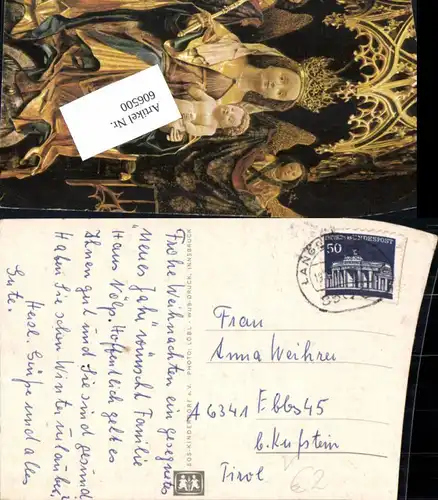 Artikel Nr.
606500
Frohe Weihnachten ein gesegnetes
neues Jahr, wünscht Familie
Hans Nölp. Hoffentlich geht es
Ihnen gut und Sie sind gesund.
Haben Sie schon Winterurlauber,
Herzl. Grüße und alles
Gute.
SOS-KINDERDORF e.V.
DEUTSCHE BUNDESPOST
50
Frau
Anna Weihrer
A 6341 Ebbs 45
b. Kufstein
Tirol
€2